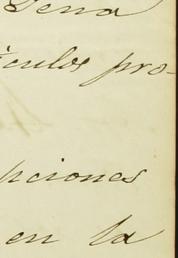 Pena
ículos pro-
pciones
en la